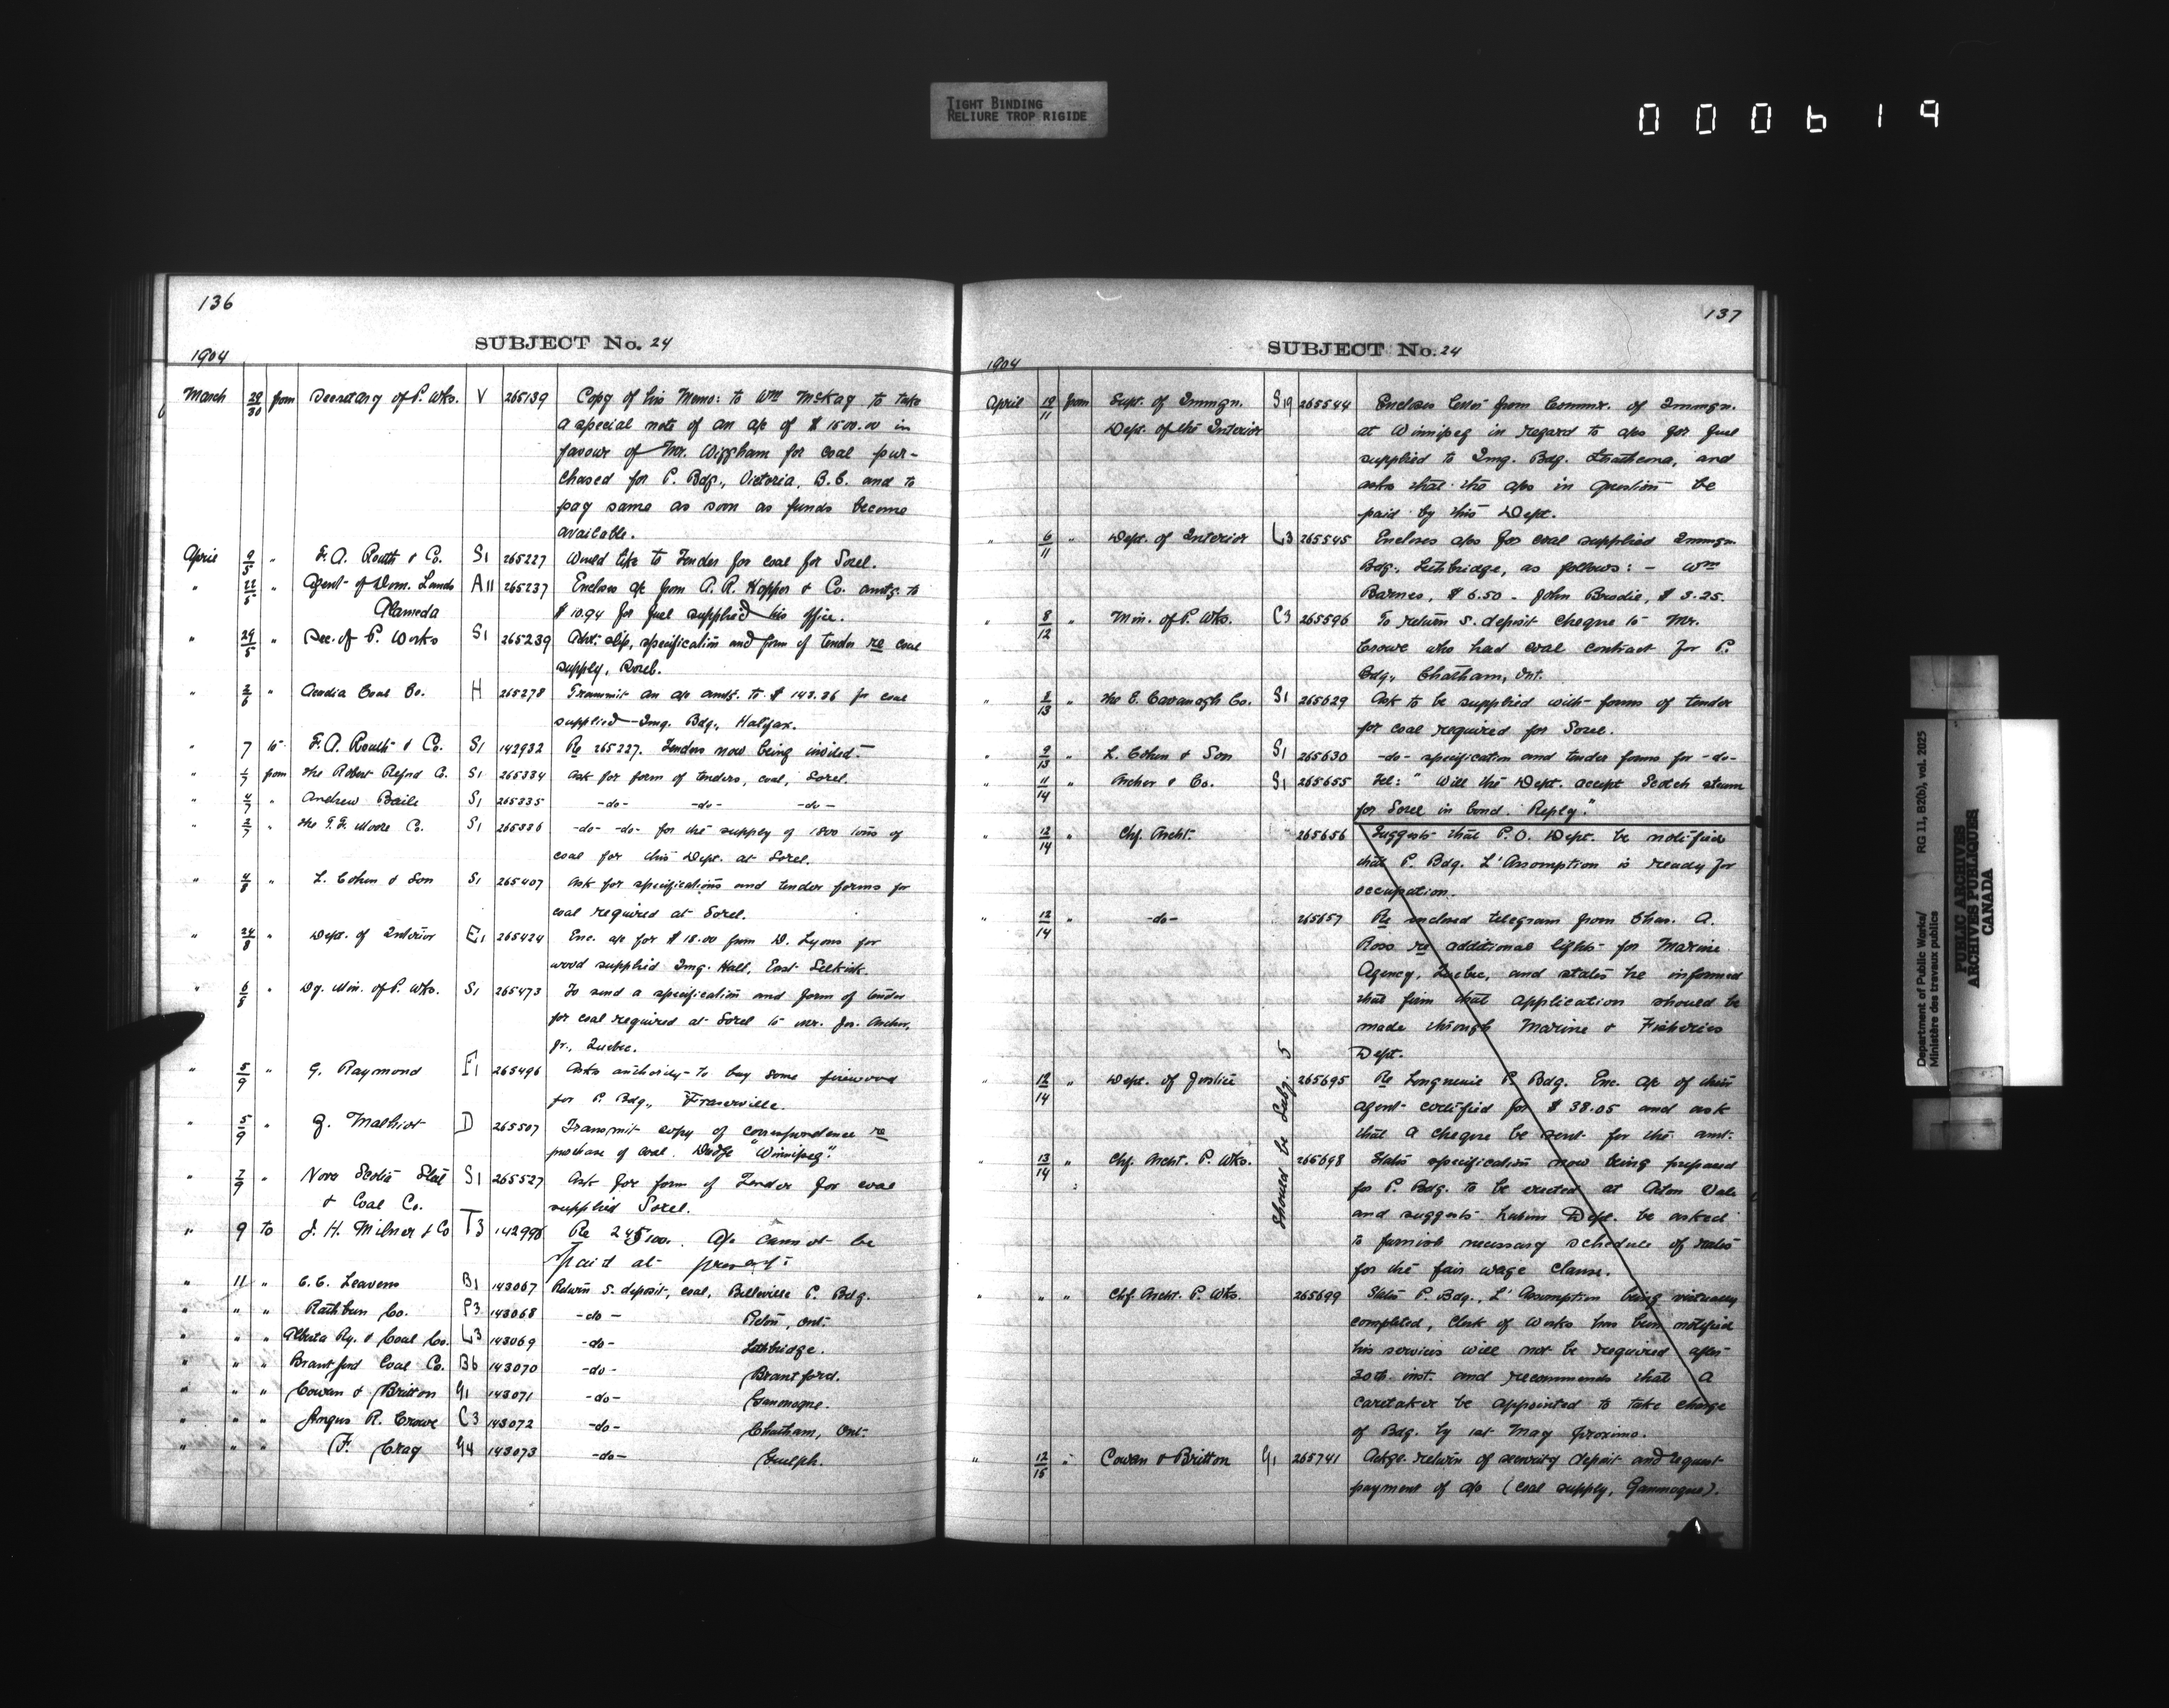 TIGHT BINDING
RELIURE TROP RIGIDE
000619
136
SUBJECT No. 24
1904
March 29/30 from Secretary of P. Wks. V 265139 Copy of his Memo: to Wm McKay to take
a special note of an a/c of $1500.00 in
favour of Mr. Wiggham for coal pur-
chased for P. Bdg., Victoria, B.C. and to
pay same as soon as funds become
available.
April 2/5 " F. A. Routh & Co. S1 265227 Would like to Tender for coal for Sorel.
" 22/5 " Agent of Dom. Lands A11 265237 Encloses a/c from A. R. Hopper & Co. amtg. to
Alameda $10.94 for fuel supplied his office.
" 29/5 " Sec. of P. Works S1 265239 Advt. slip, specification and form of tender re coal
supply, Sorel.
" 2/6 " Acadia Coal Co. H 265278 Transmit an a/c amtg. to $143.36 for coal
supplied Img. Bdg., Halifax.
" 7 to F. A. Routh & Co. S1 142932 Re 265227. Tenders now being invited.
" 1/7 from The Robert Reford Co. S1 265334 Ask for form of tenders, coal, Sorel.
" 4/7 " Andrew Baile S1 265335 -do- -do- -do-
" 2/7 " The F. F. Moore Co. S1 265336 -do- -do- for the supply of 1800 tons of
coal for this Dept. at Sorel.
" 4/8 " L. Cohen & Son S1 265407 Ask for specifications and tender forms for
coal required at Sorel.
" 24/8 " Dept. of Interior E1 265424 Enc. a/c for $18.00 from D. Lyons for
wood supplied Img. Hall, East Selkirk.
" 6/8 " Dy. Min. of P. Wks. S1 265473 To send a specification and form of tender
for coal required at Sorel to Mr. Jos. Archer,
Jr., Quebec.
" 5/9 " G. Raymond F1 265496 Asks authority to buy some firewood
for P. Bdg., Fraserville.
" 5/9 " Z. Malhiot D 265507 Transmit copy of correspondence re
purchase of coal. Dredge "Winnipeg".
" 7/9 " Nova Scotia Steel S1 265527 Ask for form of Tender for coal
& Coal Co. supplied Sorel.
" 9 to J. H. Milner & Co T3 142998 Re 245100. A/c cannot be
paid at present.
" 11 " C. E. Leavens B1 143067 Return S. deposit, coal, Belleville P. Bdg.
" " " Rathbun Co. P3 143068 -do- Picton, Ont.
" " " Alberta Ry. & Coal Co. L3 143069 -do- Lethbridge.
" " " Brantford Coal Co. B6 143070 -do- Brantford.
" " " Cowan & Britton G1 143071 -do- Gananoque.
" " " Angus R. Crowe C3 143072 -do- Chatham, Ont.
" " " F. Cray G4 143073 -do- Guelph.
137
SUBJECT No. 24
1904
April 19/11 from Supt. of Immgn. S19 265544 Encloses letter from Commr. of Immgn.
Dept. of the Interior at Winnipeg in regard to a/cs for fuel
supplied to Img. Bdg. Strathcona, and
asks that the a/cs in question be
paid by this Dept.
" 6/11 " Dept. of Interior L3 265545 Encloses a/cs for coal supplied Immgn.
Bdg., Lethbridge, as follows: - Wm
Barnes, $6.50 - John Brodie, $3.25.
" 8/12 " Min. of P. Wks. C3 265596 To return S. deposit cheque to Mr.
Crowe who had coal contract for P.
Bdg., Chatham, Ont.
" 8/13 " The E. Cavanagh Co. S1 265629 Ask to be supplied with forms of tender
for coal required for Sorel.
" 9/13 " L. Cohen & Son S1 265630 -do- specification and tender forms for -do-
" 11/14 " Archer & Co. S1 265655 Tel: " Will the Dept. accept Scotch steam
for Sorel in bond. Reply."
" 12/14 " Chf. Archt. 265656 Suggests that P.O. Dept. be notified
that P. Bdg. L'Assomption is ready for
occupation.
" 12/14 " -do- 265657 Re enclosed telegram from Chas. A.
Ross re additional lights for Marine
Agency, Quebec, and states he informed
that firm that application should be
made through Marine & Fisheries
Dept.
Should be Subj. 5
" 12/14 " Dept. of Justice 265695 Re Longueuil P. Bdg. Enc. a/c of their
agent certified for $38.05 and ask
that a cheque be sent for the amt.
" 13/14 " Chf. Archt. P. Wks. 265698 States specification now being prepared
for P. Bdg. to be erected at Acton Vale
and suggests Labour Dept. be asked
to furnish necessary schedule of rates
for the fair wage clause.
" " " Chf. Archt. P. Wks. 265699 States P. Bdg., L'Assomption being virtually
completed, Clerk of Works has been notified
his services will not be required after
30th. inst. and recommends that a
caretaker be appointed to take charge
of Bdg. by 1st May proximo.
" 12/15 " Cowan & Britton G1 265741 Ackge. return of security deposit and request
payment of a/c (coal supply, Gananoque).
Department of Public Works/ RG 11, B2(b), vol. 2025
Ministère des travaux publics
PUBLIC ARCHIVES
ARCHIVES PUBLIQUES
CANADA